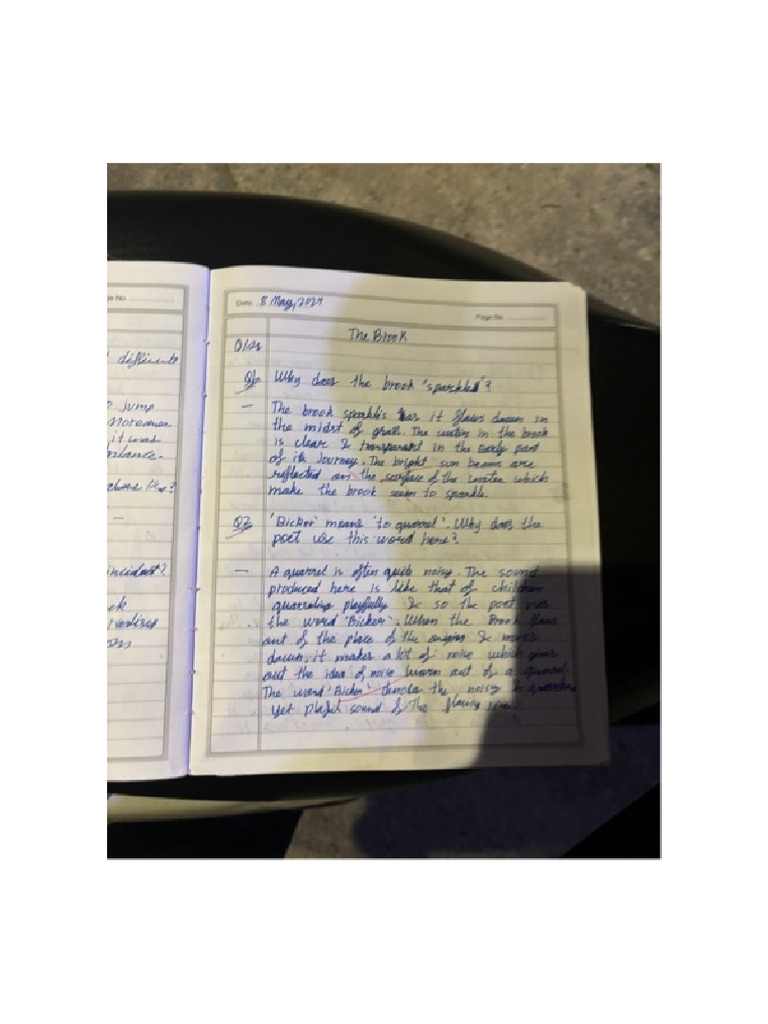 ge No.
Date 8 May, 2024
Page No.
The Brook
Q/As
different
Q1 Why does the brook "sparkles"?
jump
- The brook sparkles as it flows down in
the midst of grass. The water in the brook
it was
is clear & transparent in the early part
of its journey. The bright sun beams are
reflected on the surface of the water which
make the brook seem to sparkle.
Q2 'Bicker' means 'to quarrel'. Why does the
poet use this word here?
incident?
- A quarrel is often quite noisy. The sound
produced here is like that of children
quarreling playfully & so the poet uses
the word 'Bicker'. When the Brook flows
out of the place of the origin & moves
down, it makes a lot of noise which gives
out the idea of noise born out of a quarrel.
The word 'Bicker' denotes the noisy &
yet playful sound of The flowing